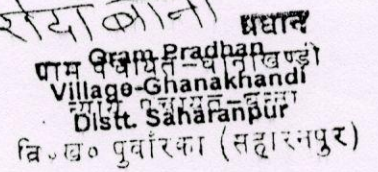 प्रधान
Gram Pradhan
ग्राम पंचायत-घानाखण्डी
Village-Ghanakhandi
न्याय पंचायत-
Distt. Saharanpur
वि.ख० पुवाँरका (सहारनपुर)